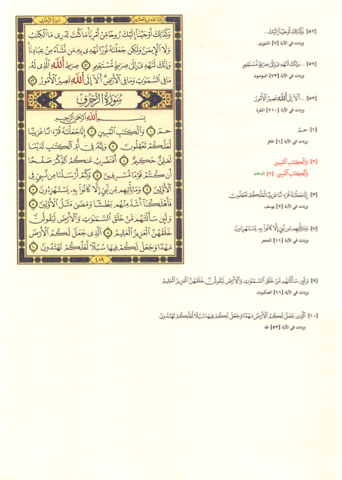 وَكَذَٰلِكَ أَوْحَيْنَا إِلَيْكَ رُوحًا مِّنْ أَمْرِنَا مَا كُنتَ تَدْرِى مَا ٱلْكِتَٰبُ
وَلَا ٱلْإِيمَٰنُ وَلَٰكِن جَعَلْنَٰهُ نُورًا نَّهْدِى بِهِۦ مَن نَّشَآءُ مِنْ عِبَادِنَا
وَإِنَّكَ لَتَهْدِىٓ إِلَىٰ صِرَٰطٍ مُّسْتَقِيمٍ ٥٢ صِرَٰطِ ٱللَّهِ ٱلَّذِى لَهُۥ
مَا فِى ٱلسَّمَٰوَٰتِ وَمَا فِى ٱلْأَرْضِ أَلَآ إِلَى ٱللَّهِ تَصِيرُ ٱلْأُمُورُ ٥٣
سُورَةُ الزُّخْرُفِ
بِسْمِ ٱللَّهِ ٱلرَّحْمَٰنِ ٱلرَّحِيمِ
حمٓ ١ وَٱلْكِتَٰبِ ٱلْمُبِينِ ٢ إِنَّا جَعَلْنَٰهُ قُرْءَٰنًا عَرَبِيًّا
لَّعَلَّكُمْ تَعْقِلُونَ ٣ وَإِنَّهُۥ فِىٓ أُمِّ ٱلْكِتَٰبِ لَدَيْنَا
لَعَلِىٌّ حَكِيمٌ ٤ أَفَنَضْرِبُ عَنكُمُ ٱلذِّكْرَ صَفْحًا
أَن كُنتُمْ قَوْمًا مُّسْرِفِينَ ٥ وَكَمْ أَرْسَلْنَا مِن نَّبِىٍّ فِى
ٱلْأَوَّلِينَ ٦ وَمَا يَأْتِيهِم مِّن نَّبِىٍّ إِلَّا كَانُوا۟ بِهِۦ يَسْتَهْزِءُونَ ٧
فَأَهْلَكْنَآ أَشَدَّ مِنْهُم بَطْشًا وَمَضَىٰ مَثَلُ ٱلْأَوَّلِينَ ٨
وَلَئِن سَأَلْتَهُم مَّنْ خَلَقَ ٱلسَّمَٰوَٰتِ وَٱلْأَرْضَ لَيَقُولُنَّ
خَلَقَهُنَّ ٱلْعَزِيزُ ٱلْعَلِيمُ ٩ ٱلَّذِى جَعَلَ لَكُمُ ٱلْأَرْضَ
مَهْدًا وَجَعَلَ لَكُمْ فِيهَا سُبُلًا لَّعَلَّكُمْ تَهْتَدُونَ ١٠
٤٨٩
[٥٢] وَكَذَٰلِكَ أَوْحَيْنَا إِلَيْكَ...
وردت في الآية [٧] الشورى
[٥٢] ...وَإِنَّكَ لَتَهْدِىٓ إِلَىٰ صِرَٰطٍ مُّسْتَقِيمٍ
[٥٣] ...أَلَآ إِلَى ٱللَّهِ تَصِيرُ ٱلْأُمُورُ
[١] حمٓ
وردت في الآية [١] غافر
[٢] وَٱلْكِتَٰبِ ٱلْمُبِينِ
وَٱلْكِتَٰبِ ٱلْمُبِينِ [٢] الدخان
[٣] إِنَّا جَعَلْنَٰهُ قُرْءَٰنًا عَرَبِيًّا لَّعَلَّكُمْ تَعْقِلُونَ
وردت في الآية [٢] يوسف
[٧] وَمَا يَأْتِيهِم مِّن نَّبِىٍّ إِلَّا كَانُوا۟ بِهِۦ يَسْتَهْزِءُونَ
وردت في الآية [١١] الحجر
[٩] وَلَئِن سَأَلْتَهُم مَّنْ خَلَقَ ٱلسَّمَٰوَٰتِ وَٱلْأَرْضَ لَيَقُولُنَّ خَلَقَهُنَّ ٱلْعَزِيزُ ٱلْعَلِيمُ
وردت في الآية [٦١] العنكبوت
[١٠] ٱلَّذِى جَعَلَ لَكُمُ ٱلْأَرْضَ مَهْدًا وَجَعَلَ لَكُمْ فِيهَا سُبُلًا لَّعَلَّكُمْ تَهْتَدُونَ
وردت في الآية [٥٣] طه